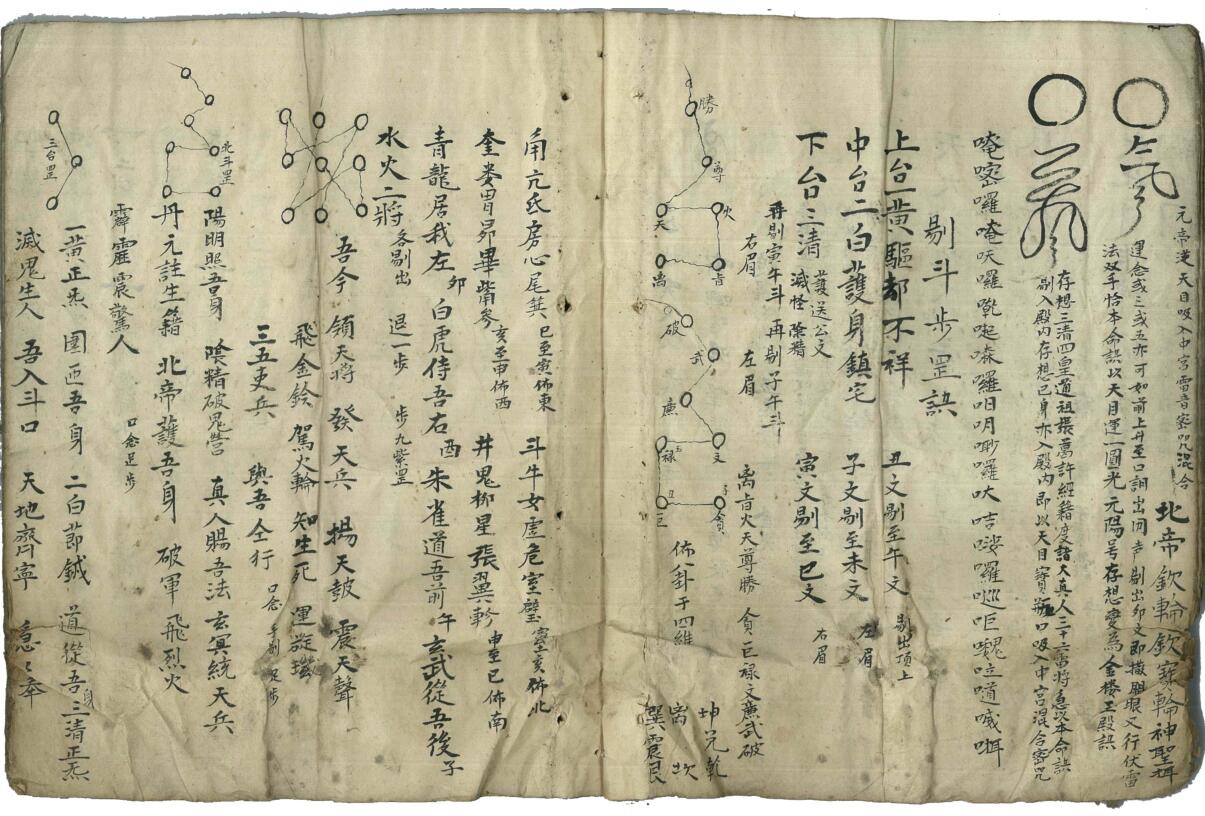 元帝逆天目吸入中宮雷音密咒混合
北帝欽輪欽寶輪神聖
運念或三或五亦可如前上升至口訶出间声剔出卯文即撤眼又行伏雷
法双手恰本命訣以天目運一圓光元陽号存想變為金楼玉殿訣
存想三清四皇道祖張葛許經籍度諸大真人三十六雷将急以本命訣
剔入殿内存想已身亦入殿内即以天目寶瓶口吸入中宮混合密咒
剔斗步罡訣
上台一黃驅都不祥 丑文剔至午文 剔出頂上
中台二白護身鎮宅 子文剔至未文 左眉
下台三清 護送公文 滅怪除精 寅文剔至巳文 右眉
再剔寅午斗 再剔子午斗
右眉
左眉
离 肖 火 天 尊 勝 貪巨禄文廉武破
佈八卦于四維
坤兌乾
离 坎
巽震艮
勝
尊
火
天
肖
离
破
武
廉
文
禄
丑
巨
子
貪
角亢氐房心尾箕 巳至寅佈東 斗牛女虚危室壁 佈北
奎娄胃昴畢觜參 亥至申佈西 井鬼柳星張翼軫 申至巳佈南
青龍居我左 卯 白虎侍吾右 酉 朱雀道吾前 午 玄武從吾後 子
水火二將 各剔出 退一步 步九紫罡
吾今領天将 發天兵 揚天鼓 震天聲
飛金鈴 駕火輪 知生死 運璇璣
三五吏兵 與吾仝行 口念手剔足步
北斗罡
陽明照吾身 陰精破鬼營 真人賜吾法 玄冥統天兵
丹元註生籍 北帝護吾身 破軍飛烈火
霹靂震驚人 口念足步
三台罡
一黃正炁 圍匝吾身 二白節鉞 道從吾身 三清正炁
滅鬼生人 吾入斗口 天地齊寧 急〻奉